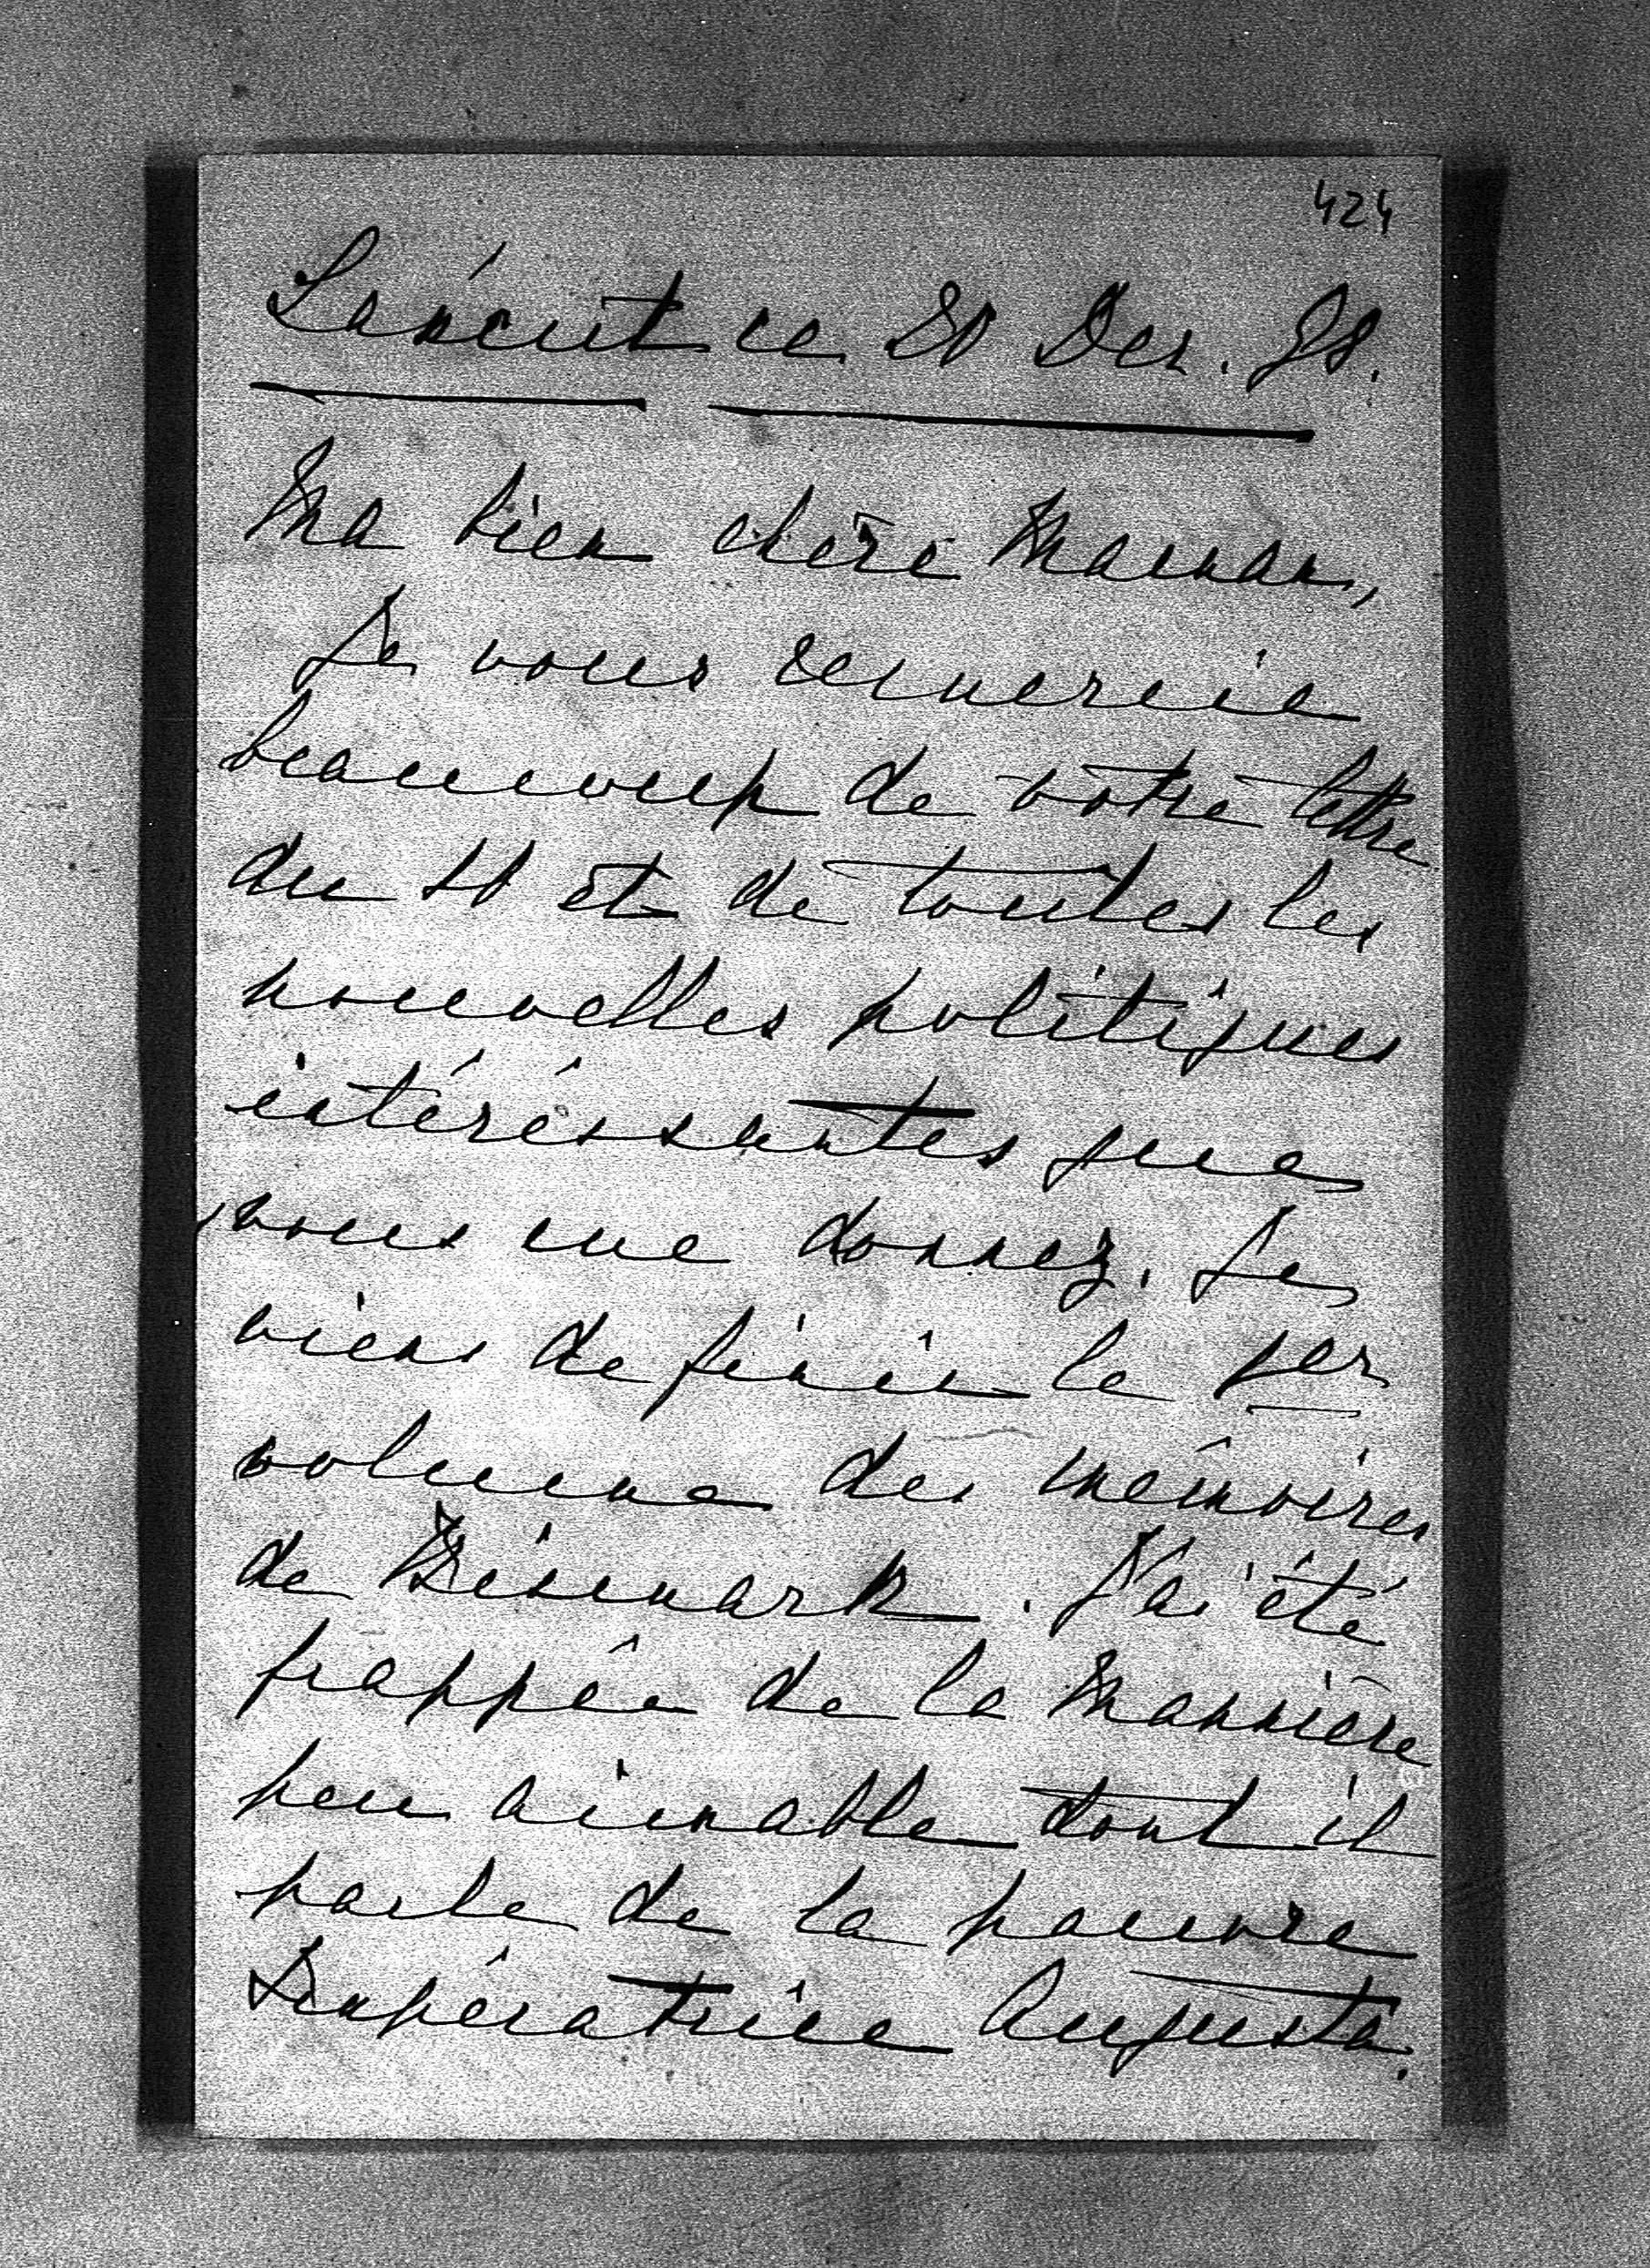 424
Łańcut ce 20 Dec. 98.
Ma bien chère Maman,
Je vous remercie
beaucoup de votre lettre
du 10 et de toutes les
nouvelles politiques
intéréssantes que
vous me donnez. Je
viens de finir le 1er
volume des mêmoires
de Bismark. J'ai été
frappée de la mannière
peu aimable dont il
parle de la pauvre
Impératrice Augusta.